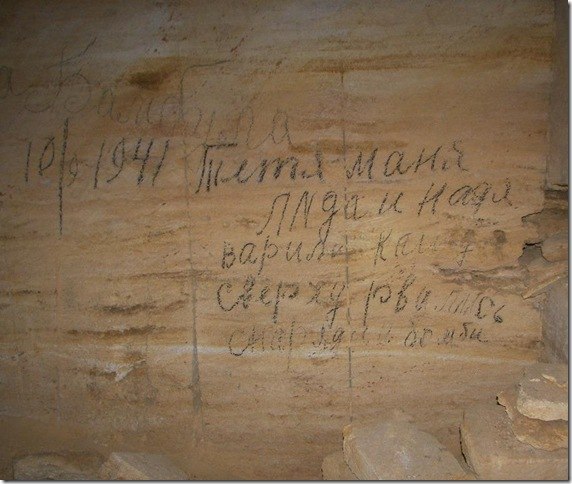 10/9 1941 Тетя маня
ЛИда и надя
варили кашу
сверху рвались
снаряди и бомби